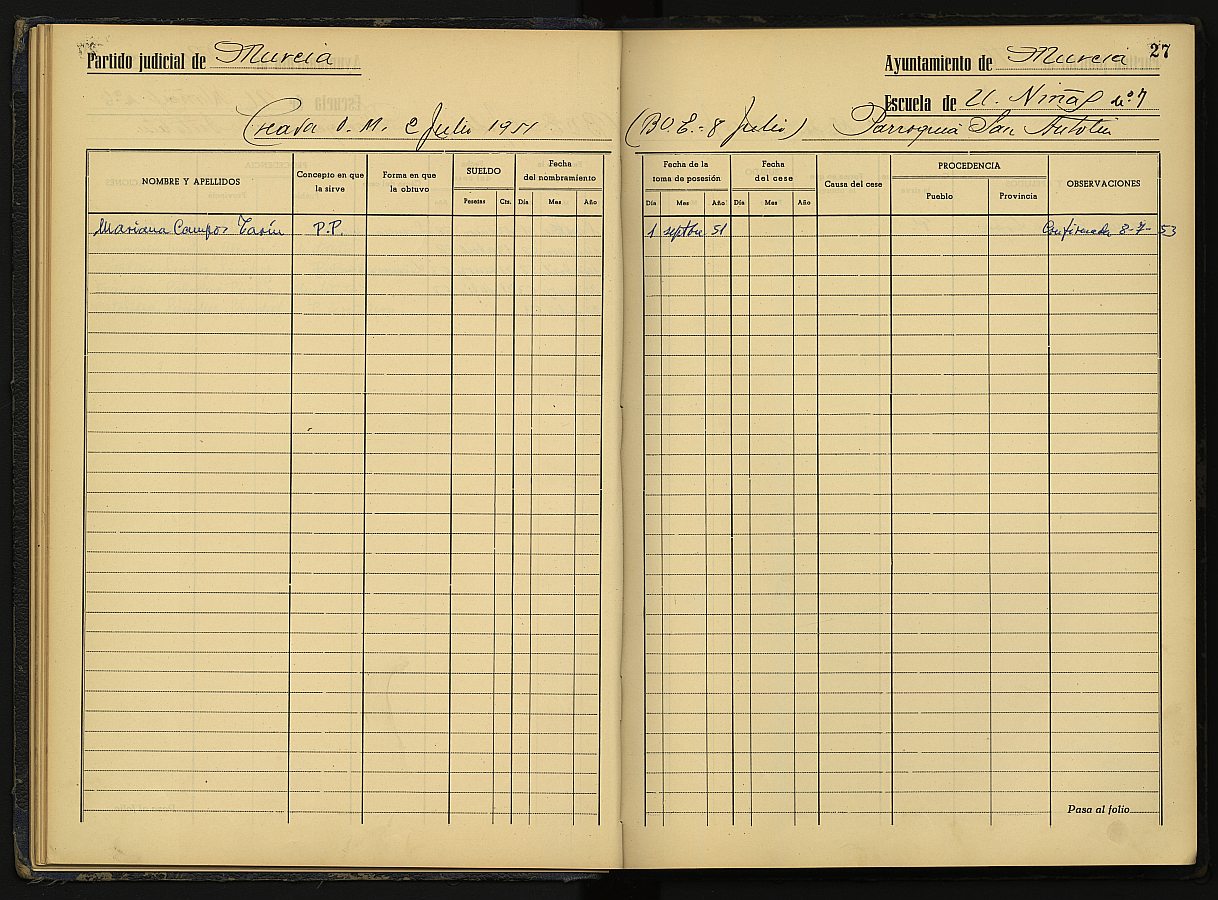 Partido judicial de Murcia
Creada O. M. 2 Julio 1951
NOMBRE Y APELLIDOS
Concepto en que la sirve
Forma en que la obtuvo
SUELDO
Pesetas Cts.
Fecha del nombramiento
Día Mes Año
Mariana Campos Tarín P.P.
27
Ayuntamiento de Murcia
Escuela de U. Niñas nº. 7
(B.O.E. - 8 Julio) Parroquia San Antolín
Fecha de la toma de posesión
Día Mes Año
Fecha del cese
Día Mes Año
Causa del cese
PROCEDENCIA
Pueblo Provincia
OBSERVACIONES
1 septbre 51 Confirmada 8-7-53
Pasa al folio